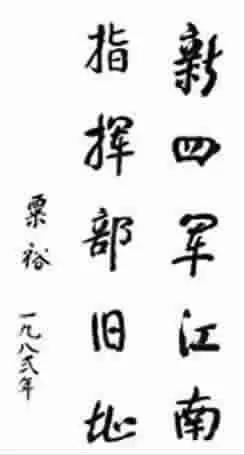 新四军江南
指挥部旧址
粟裕 一九八弍年